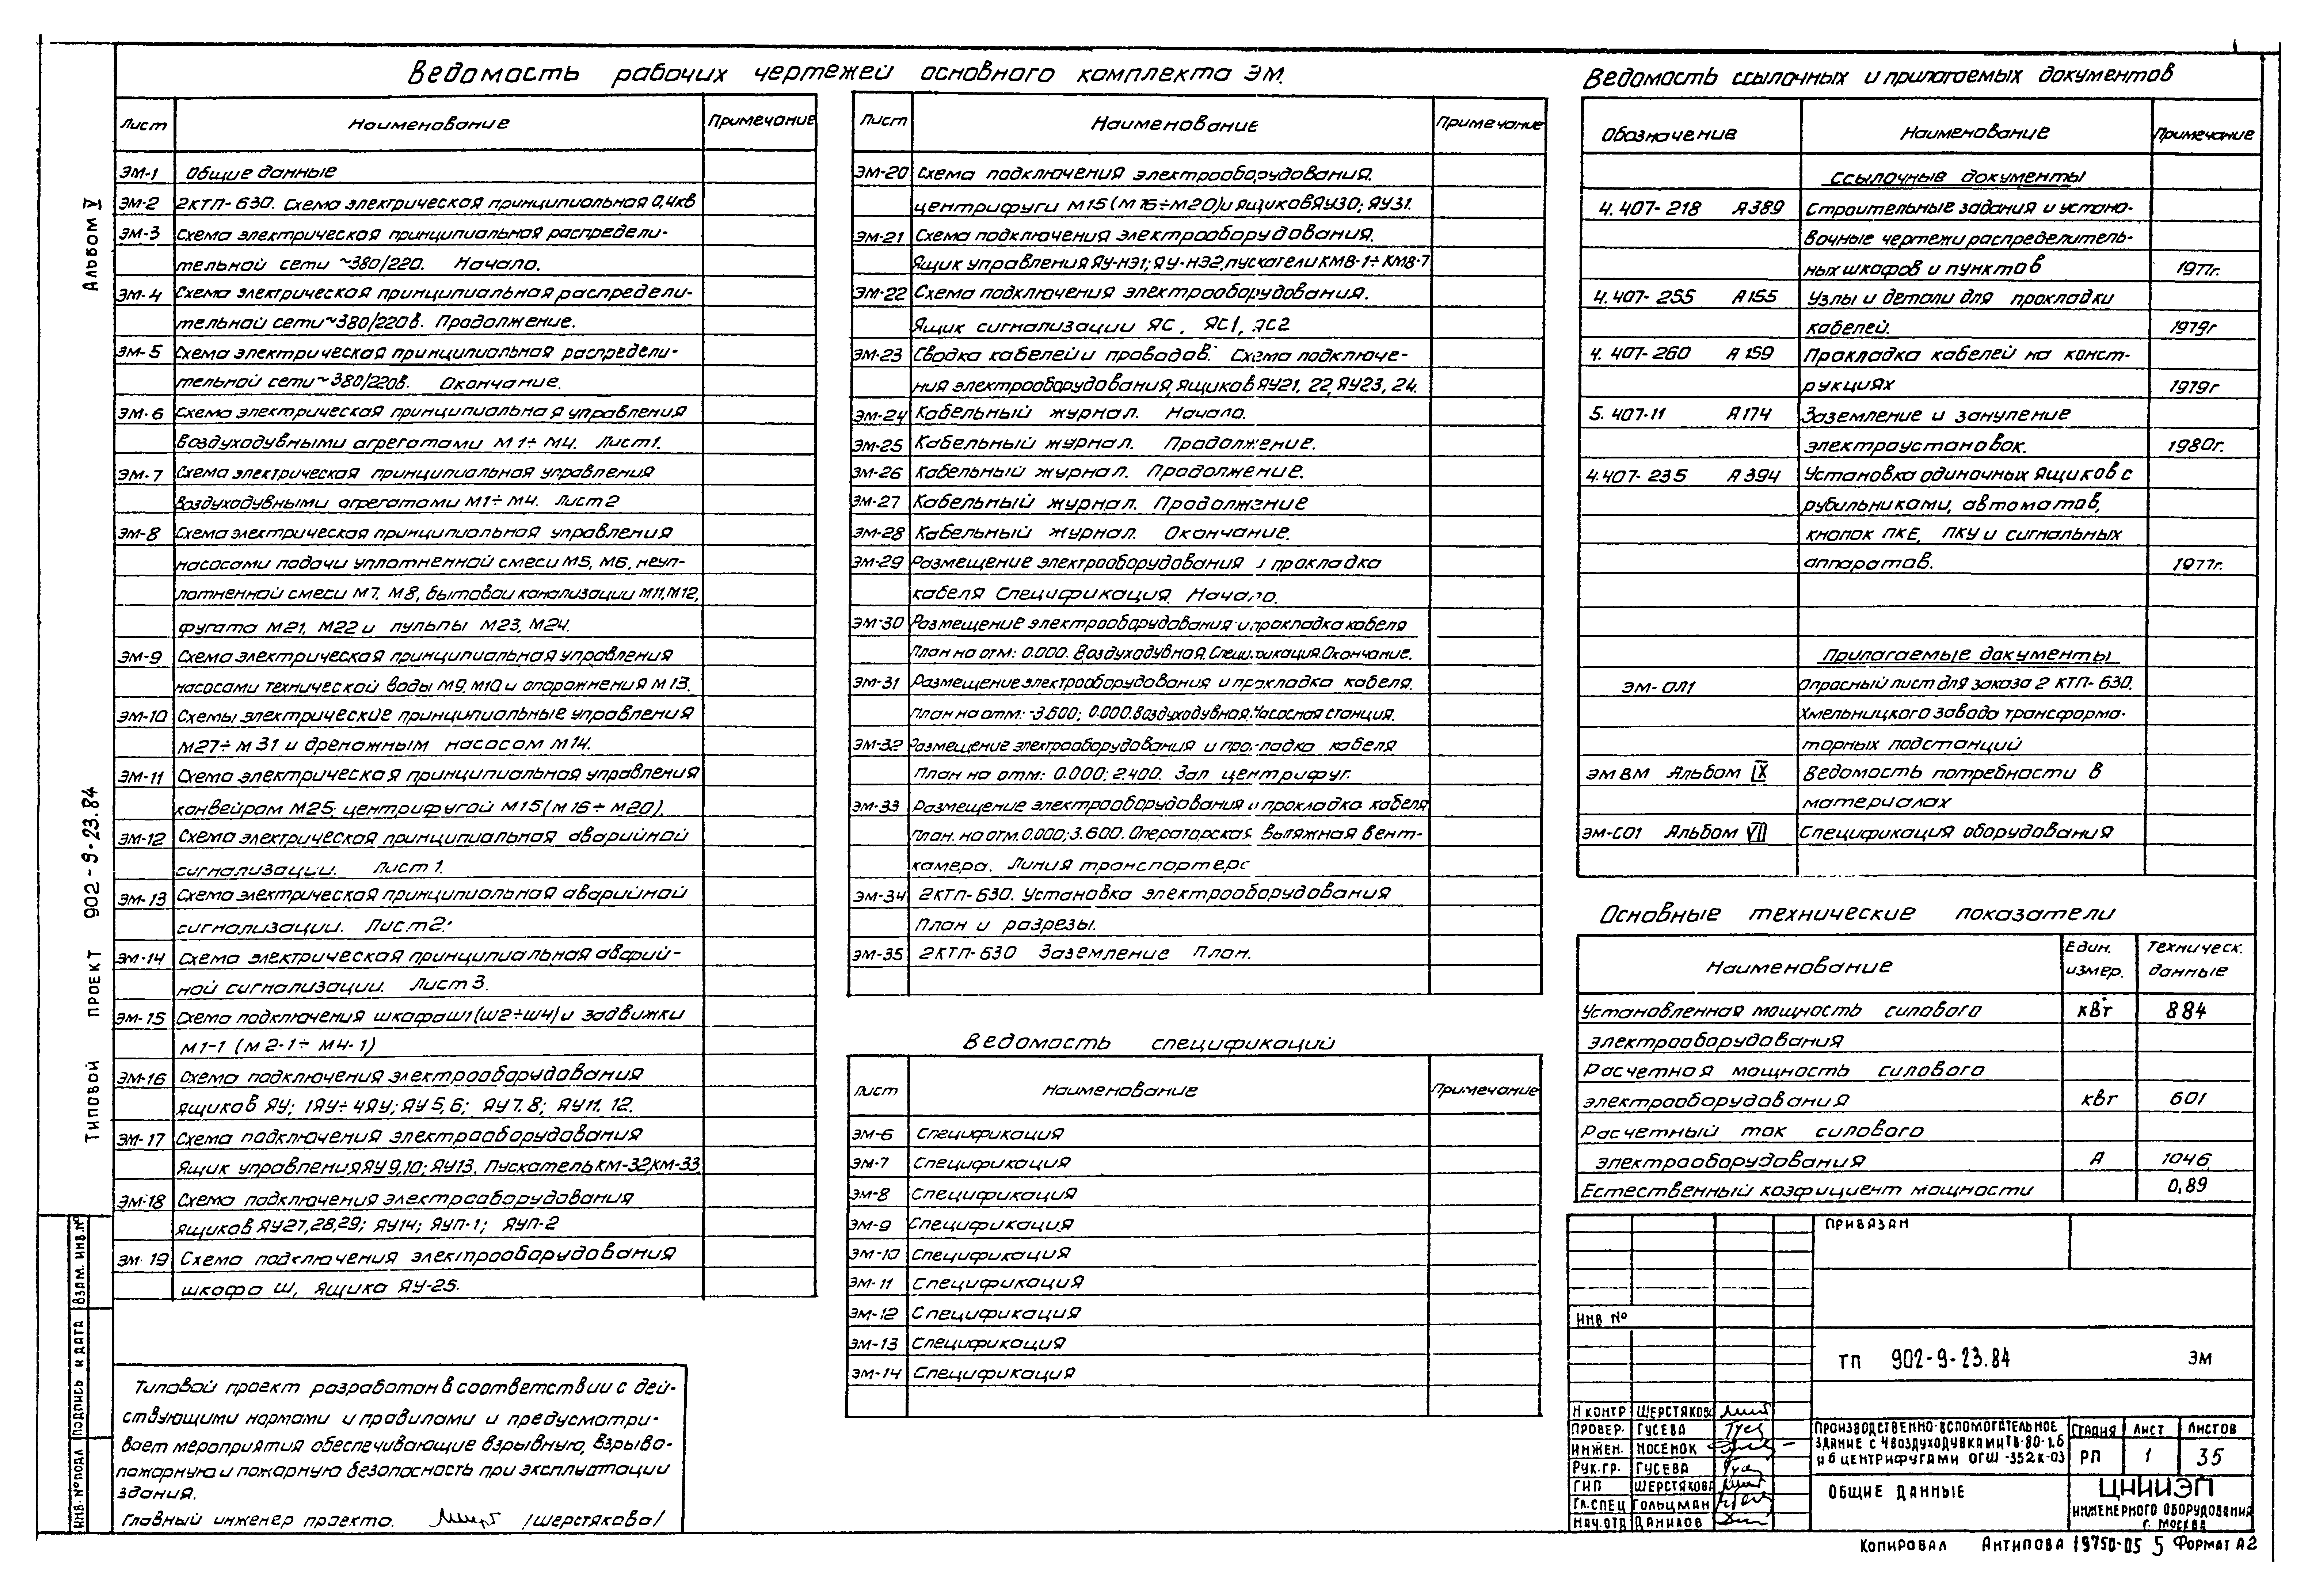 Ведомость рабочих чертежей основного комплекта ЭМ.
Лист Наименование Примечание
ЭМ-1 Общие данные
ЭМ-2 2КТП-630. Схема электрическая принципиальная 0,4кв
ЭМ-3 Схема электрическая принципиальная распредели-
тельной сети ~380/220. Начало.
ЭМ-4 Схема электрическая принципиальная распредели-
тельной сети ~380/220в. Продолжение.
ЭМ-5 Схема электрическая принципиальная распредели-
тельной сети ~380/220в. Окончание.
ЭМ-6 Схема электрическая принципиальная управления
воздуходувными агрегатами М1÷М4. Лист1.
ЭМ-7 Схема электрическая принципиальная управления
воздуходувными агрегатами М1÷М4. Лист2
ЭМ-8 Схема электрическая принципиальная управления
насосами подачи уплотненной смеси М5, М6, неуп-
лотненной смеси М7, М8, бытовой канализации М11, М12,
фугата М21, М22 и пульпы М23, М24.
ЭМ-9 Схема электрическая принципиальная управления
насосами технической воды М9, М10 и опорожнения М13.
ЭМ-10 Схемы электрические принципиальные управления
М27÷М31 и дренажным насосом М14.
ЭМ-11 Схема электрическая принципиальная управления
конвейром М25; центрифугой М15 (М16÷М20).
ЭМ-12 Схема электрическая принципиальная аварийной
сигнализации. Лист1.
ЭМ-13 Схема электрическая принципиальная аварийной
сигнализации. Лист2.
ЭМ-14 Схема электрическая принципиальная аварий-
ной сигнализации. Лист3.
ЭМ-15 Схема подключения шкафа Ш1 (Ш2÷Ш4) и задвижки
М1-1 (М2-1÷М4-1)
ЭМ-16 Схема подключения электрооборудования
ящиков ЯУ; 1ЯУ÷4ЯУ; ЯУ5,6; ЯУ7.8; ЯУ11. 12.
ЭМ-17 Схема подключения электрооборудования
Ящик управления ЯУ9,10; ЯУ13. Пускатель КМ-32, КМ-33
ЭМ-18 Схема подключения электрооборудования
ящиков ЯУ27,28,29; ЯУ14; ЯУП-1; ЯУП-2
ЭМ-19 Схема подключения электрооборудования
шкафа Ш, ящика ЯУ-25.
Типовой проект разработан в соответствии с дей-
ствующими нормами и правилами и предусматри-
вает мероприятия обеспечивающие взрывную, взрыво-
пожарную и пожарную безопасность при эксплуатации
здания.
Главный инженер проекта. /Шерстякова/
Лист Наименование Примечание
ЭМ-20 Схема подключения электрооборудования.
центрифуги М15 (М16÷М20) и ящиков ЯУ30; ЯУ31.
ЭМ-21 Схема подключения электрооборудования.
Ящик управления ЯУ-НЭ1; ЯУ-НЭ2, пускатели КМ8-1÷КМ8-7
ЭМ-22 Схема подключения электрооборудования.
Ящик сигнализации ЯС, ЯС1, ЯС2
ЭМ-23 Сводка кабелей и проводов. Схема подключе-
ния электрооборудования, ящиков ЯУ21, 22, ЯУ23, 24.
ЭМ-24 Кабельный журнал. Начало.
ЭМ-25 Кабельный журнал. Продолжение.
ЭМ-26 Кабельный журнал. Продолжение.
ЭМ-27 Кабельный журнал. Продолжение
ЭМ-28 Кабельный журнал. Окончание.
ЭМ-29 Размещение электрооборудования и прокладка
кабеля Спецификация. Начало.
ЭМ-30 Размещение электрооборудования и прокладка кабеля
План на отм: 0.000. Воздуходувная. Спецификация. Окончание.
ЭМ-31 Размещение электрооборудования и прокладка кабеля.
План на отм: -3.600; 0.000. Воздуходувная. Насосная станция.
ЭМ-32 Размещение электрооборудования и прокладка кабеля
План на отм: 0.000; 2.400. Зал центрифуг.
ЭМ-33 Размещение электрооборудования и прокладка кабеля
План. на отм. 0.000; 3.600. Операторская Вытяжная вент-
камера. Линия транспортера
ЭМ-34 2КТП-630. Установка электрооборудования
План и разрезы.
ЭМ-35 2КТП-630 Заземление План.
Ведомость спецификаций
Лист Наименование Примечание
ЭМ-6 Спецификация
ЭМ-7 Спецификация
ЭМ-8 Спецификация
ЭМ-9 Спецификация
ЭМ-10 Спецификация
ЭМ-11 Спецификация
ЭМ-12 Спецификация
ЭМ-13 Спецификация
ЭМ-14 Спецификация
Ведомость ссылочных и прилагаемых документов
Обозначение Наименование Примечание
Ссылочные документы
4.407-218 А389 Строительные задания и устано-
вочные чертежи распределитель-
ных шкафов и пунктов 1977г.
4.407-255 А155 Узлы и детали для прокладки
кабелей. 1979г
4.407-260 А159 Прокладка кабелей на конст-
рукциях 1979г
5.407-11 А174 Заземление и зануление
электроустановок. 1980г.
4.407-235 А394 Установка одиночных ящиков с
рубильниками, автоматов,
кнопок ПКЕ, ПКУ и сигнальных
аппаратов. 1977г.
Прилагаемые документы
ЭМ-ОЛ1 Опросный лист для заказа 2 КТП-630.
Хмельницкого завода трансформа-
торных подстанций
ЭМ ВМ Альбом IX Ведомость потребности в
материалах
ЭМ-СО1 Альбом VII Спецификация оборудования
Основные технические показатели
Наименование Един. измер. Техническ. данные
Установленная мощность силового квт 884
электрооборудования
Расчетная мощность силового
электрооборудования квт 601
Расчетный ток силового
электрооборудования А 1046
Естественный коэфициент мощности 0,89
ПРИВЯЗАН
ИНВ №
ТП 902-9-23.84 ЭМ
Н КОНТР ШЕРСТЯКОВА
ПРОВЕР. ГУСЕВА
ИНЖЕН. НОСЕНОК
РУК.ГР. ГУСЕВА
ГИП ШЕРСТЯКОВА
ГЛ.СПЕЦ ГОЛЬЦМАН
НАЧ.ОТД ДАНИЛОВ
ПРОИЗВОДСТВЕННО-ВСПОМОГАТЕЛЬНОЕ
ЗДАНИЕ С 4 ВОЗДУХОДУВКАМИ ТВ-80-1.6
И 6 ЦЕНТРИФУГАМИ ОГШ-352К-03
СТАДИЯ ЛИСТ ЛИСТОВ
РП 1 35
ОБЩИЕ ДАННЫЕ
ЦНИИЭП
ИНЖЕНЕРНОГО ОБОРУДОВАНИЯ
Г. МОСКВА
КОПИРОВАЛ АНТИПОВА 19750-05 5 ФОРМАТ А2
АЛЬБОМ V
ТИПОВОЙ ПРОЕКТ 902-9-23.84
ИНВ. № ПОДЛ ПОДПИСЬ И ДАТА ВЗАМ. ИНВ.№